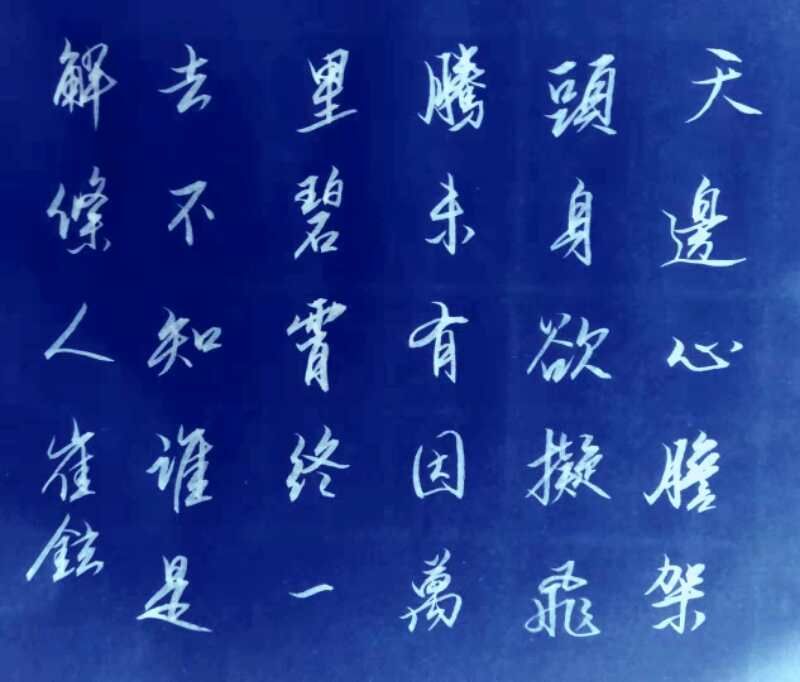 天邊心膽架
頭身欲擬飛
騰未有因萬
里碧霄終一
去不知誰是
解絛人崔鉉